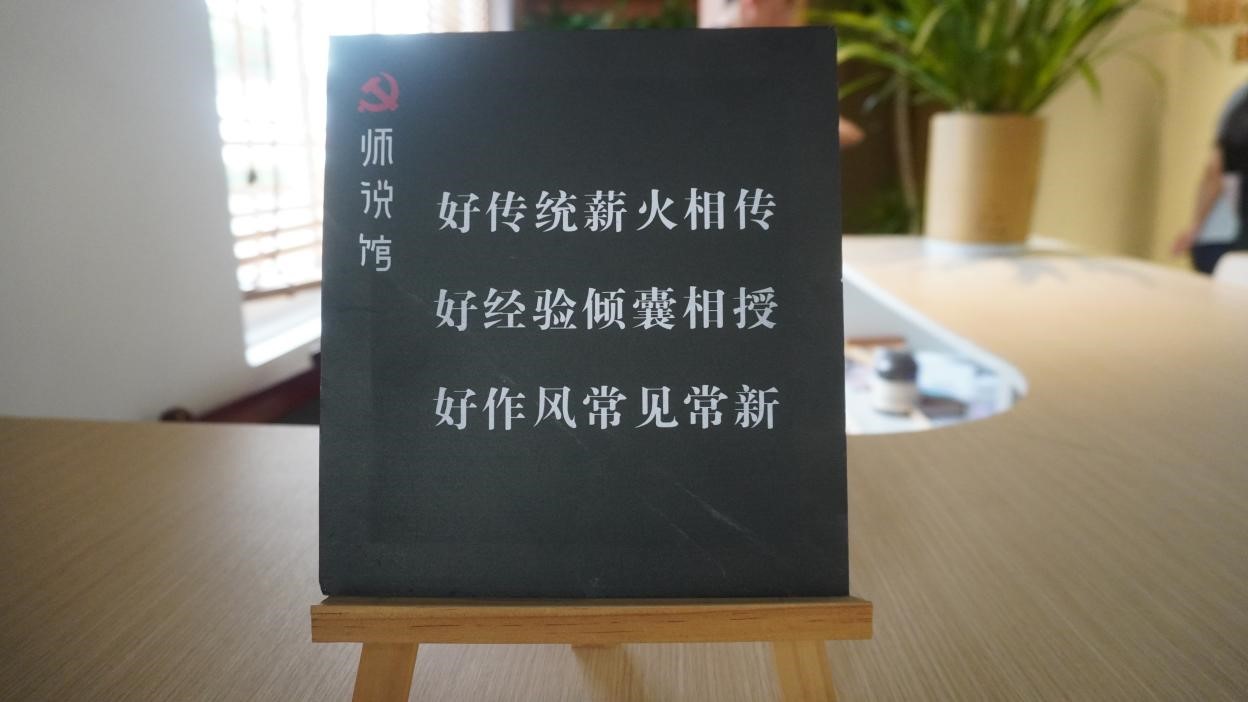 师说馆
好传统薪火相传
好经验倾囊相授
好作风常见常新